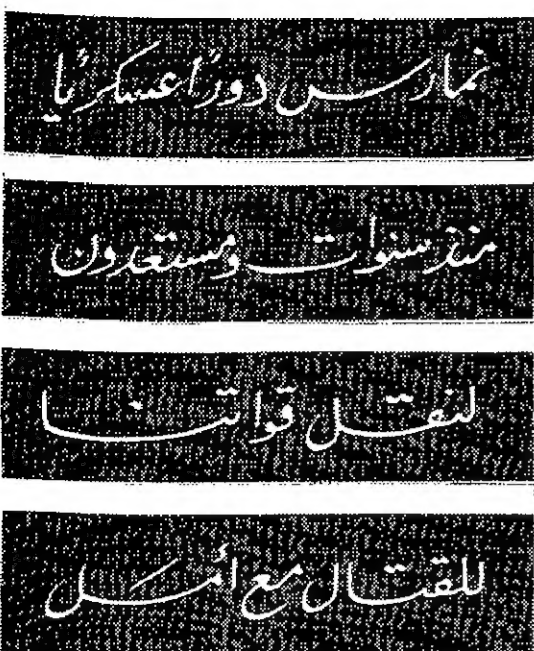 نمارس دورًا عسكريًا
منذ سنوات ومستعدون
لنقل قواتنا
للقتال مع أمَل